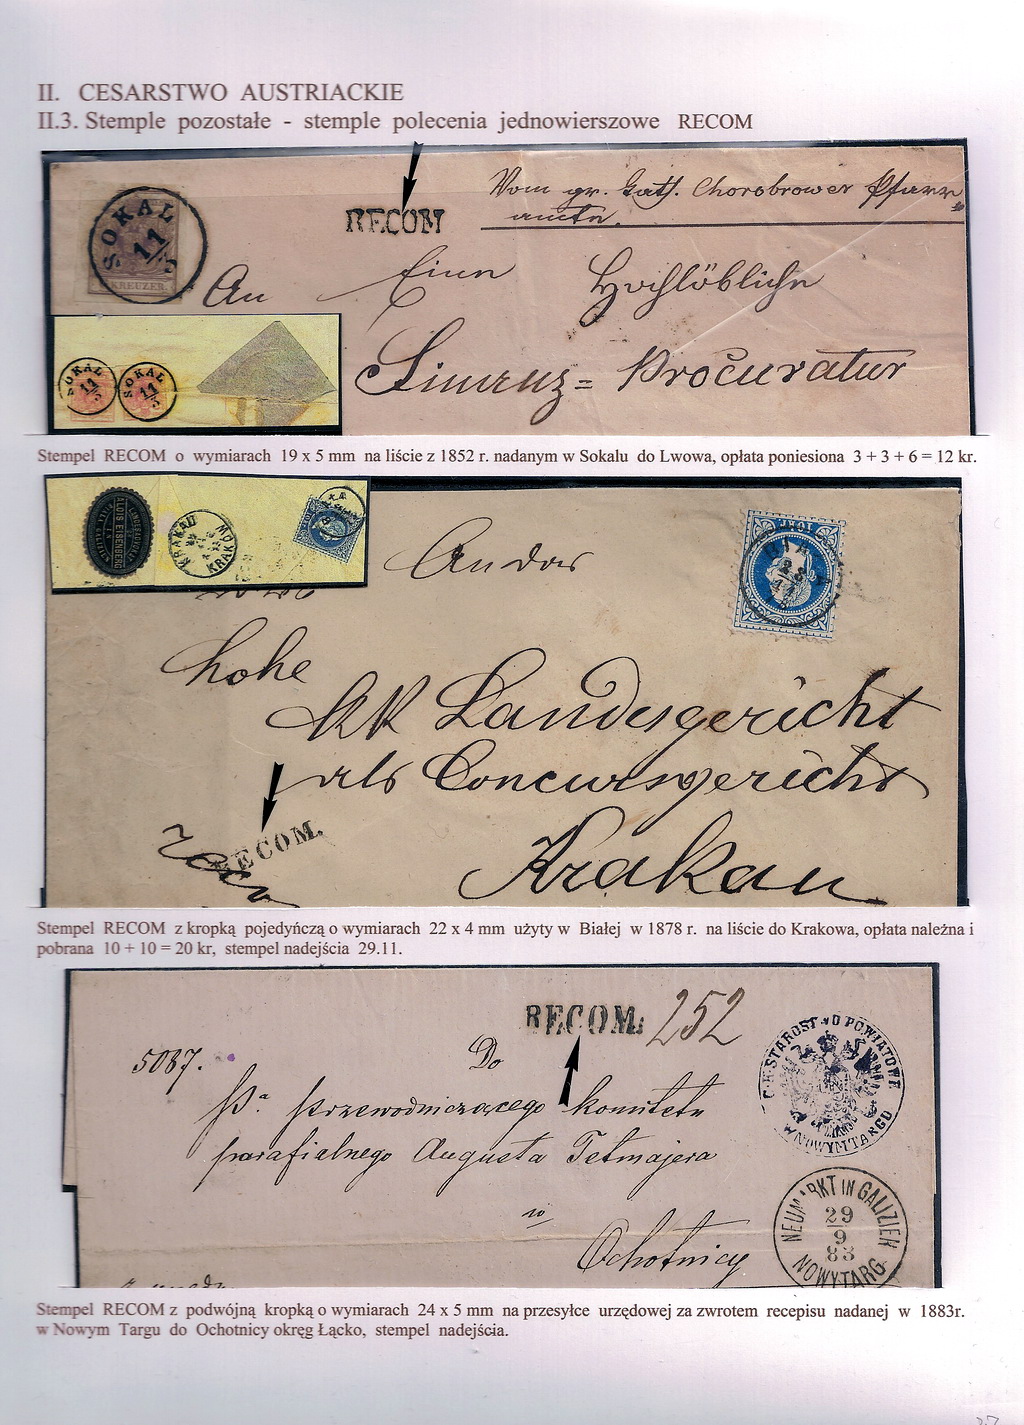 II. CESARSTWO AUSTRIACKIE
II.3. Stemple pozostałe - stemple polecenia jednowierszowe RECOM
SOKAL
11/5
KREUZER.
RECOM
Vom gr. kath. Chorobrower Pfarr=
amte.
An Eine Hochlöbliche
Finanz= Procuratur
SOKAL
11/5
SOKAL
11/5
Stempel RECOM o wymiarach 19 x 5 mm na liście z 1852 r. nadanym w Sokalu do Lwowa, opłata poniesiona 3 + 3 + 6 = 12 kr.
ALOIS EISENBERG
KRAKAU
KRAKOW
An das
hohe
KK Landesgericht
als Concursgericht
Krakau
Reco
RECOM.
Stempel RECOM z kropką pojedyńczą o wymiarach 22 x 4 mm użyty w Białej w 1878 r. na liście do Krakowa, opłata należna i
pobrana 10 + 10 = 20 kr, stempel nadejścia 29.11.
RECOM: 252
5087.
Do
Pa. Przewodniczącego Komitetu
parafialnego Augusta Tetmajera
w
Ochotnicy
C. K. STAROSTWO POWIATOWE
W NOWYM TARGU
NEUMARKT IN GALIZIEN
29
9
83
NOWYTARG
Stempel RECOM z podwójną kropką o wymiarach 24 x 5 mm na przesyłce urzędowej za zwrotem recepisu nadanej w 1883r.
w Nowym Targu do Ochotnicy okręg Łącko, stempel nadejścia.